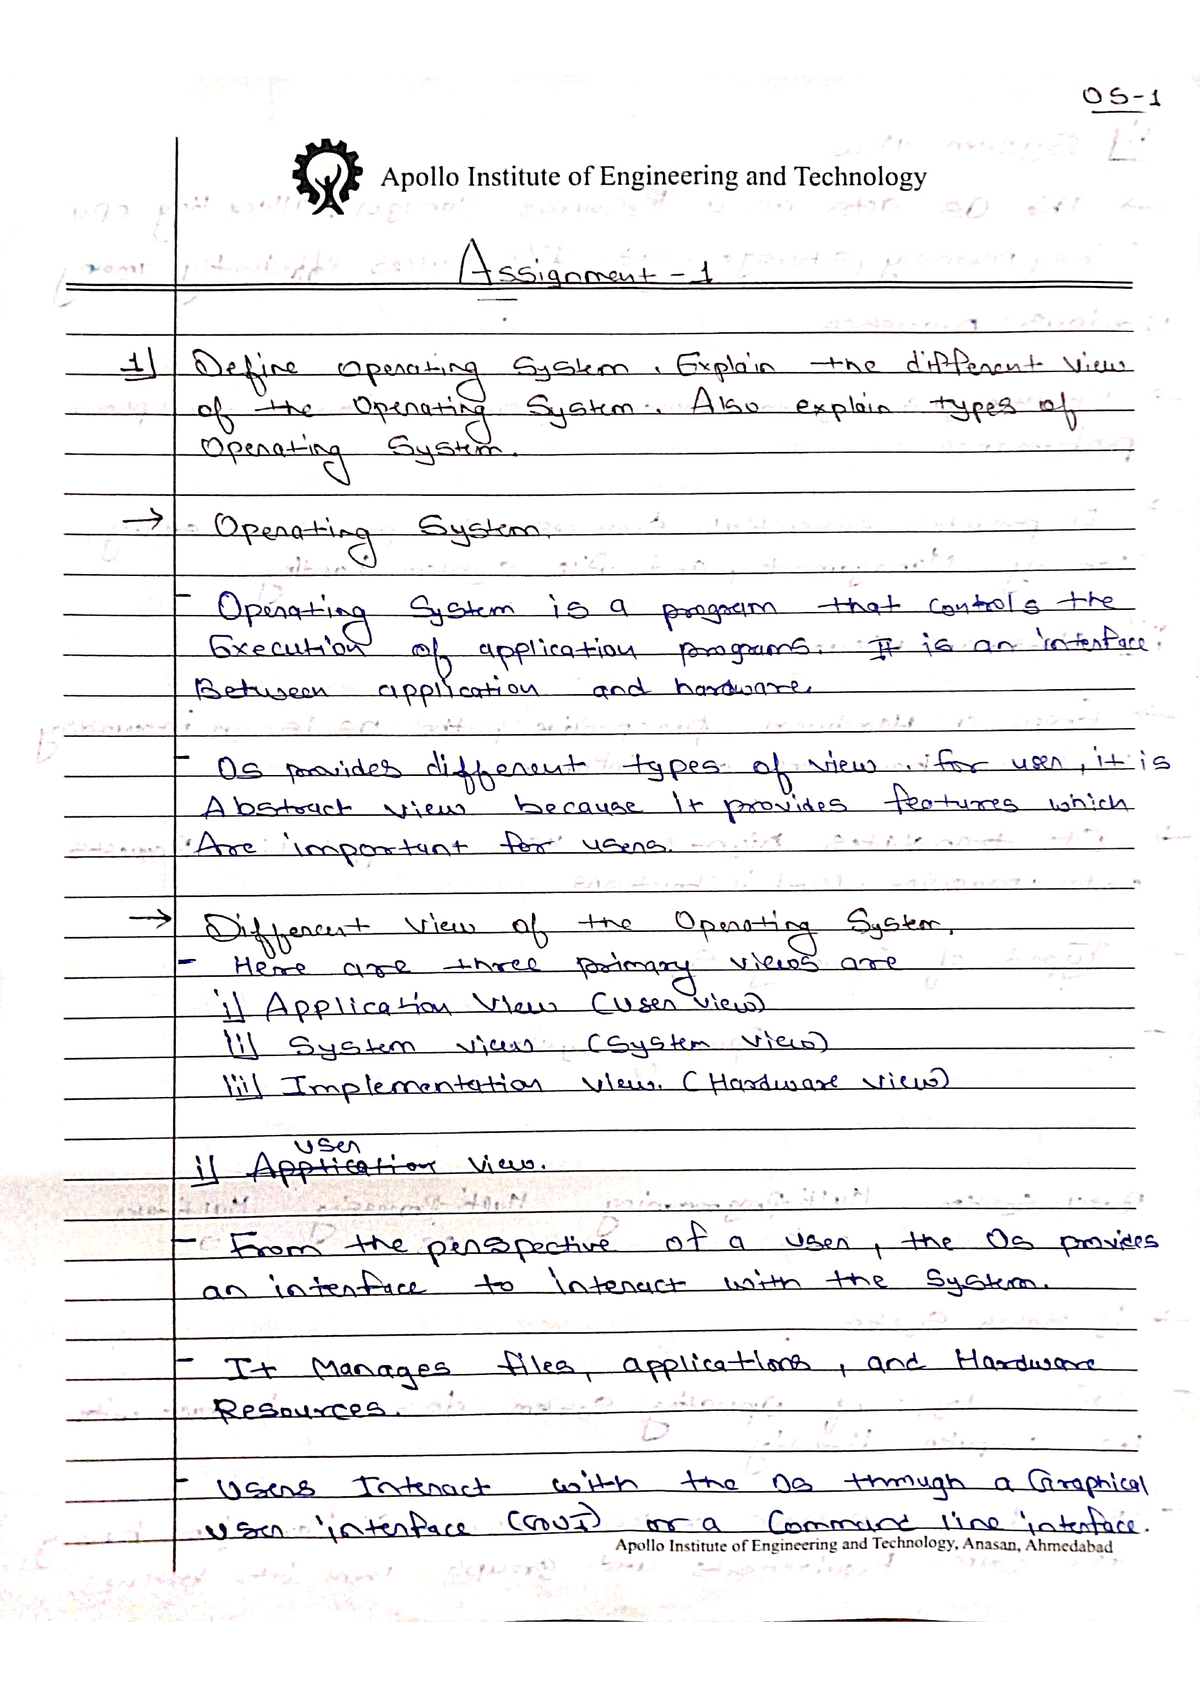 OS-1
Apollo Institute of Engineering and Technology
Assignment - 1
1) Define operating System. Explain the different view
of the Operating System. Also explain types of
Operating System.
→ Operating System.
- Operating System is a program that controls the
Execution of application programs. It is an interface
Between application and hardware.
- OS provides different types of view. for user, it is
Abstract view because it provides features which
Are important for users.
→ Different view of the Operating System.
- Here are three primary views are
i) Application View (User view)
ii) System view (System view)
iii) Implementation view. (Hardware view)
user
i) Application view.
- From the perspective of a user, the OS provides
an interface to interact with the System.
- It Manages files, applications, and Hardware
Resources.
- Users Interact with the OS through a Graphical
user interface (GUI) or a Command line interface.
Apollo Institute of Engineering and Technology, Anasan, Ahmedabad